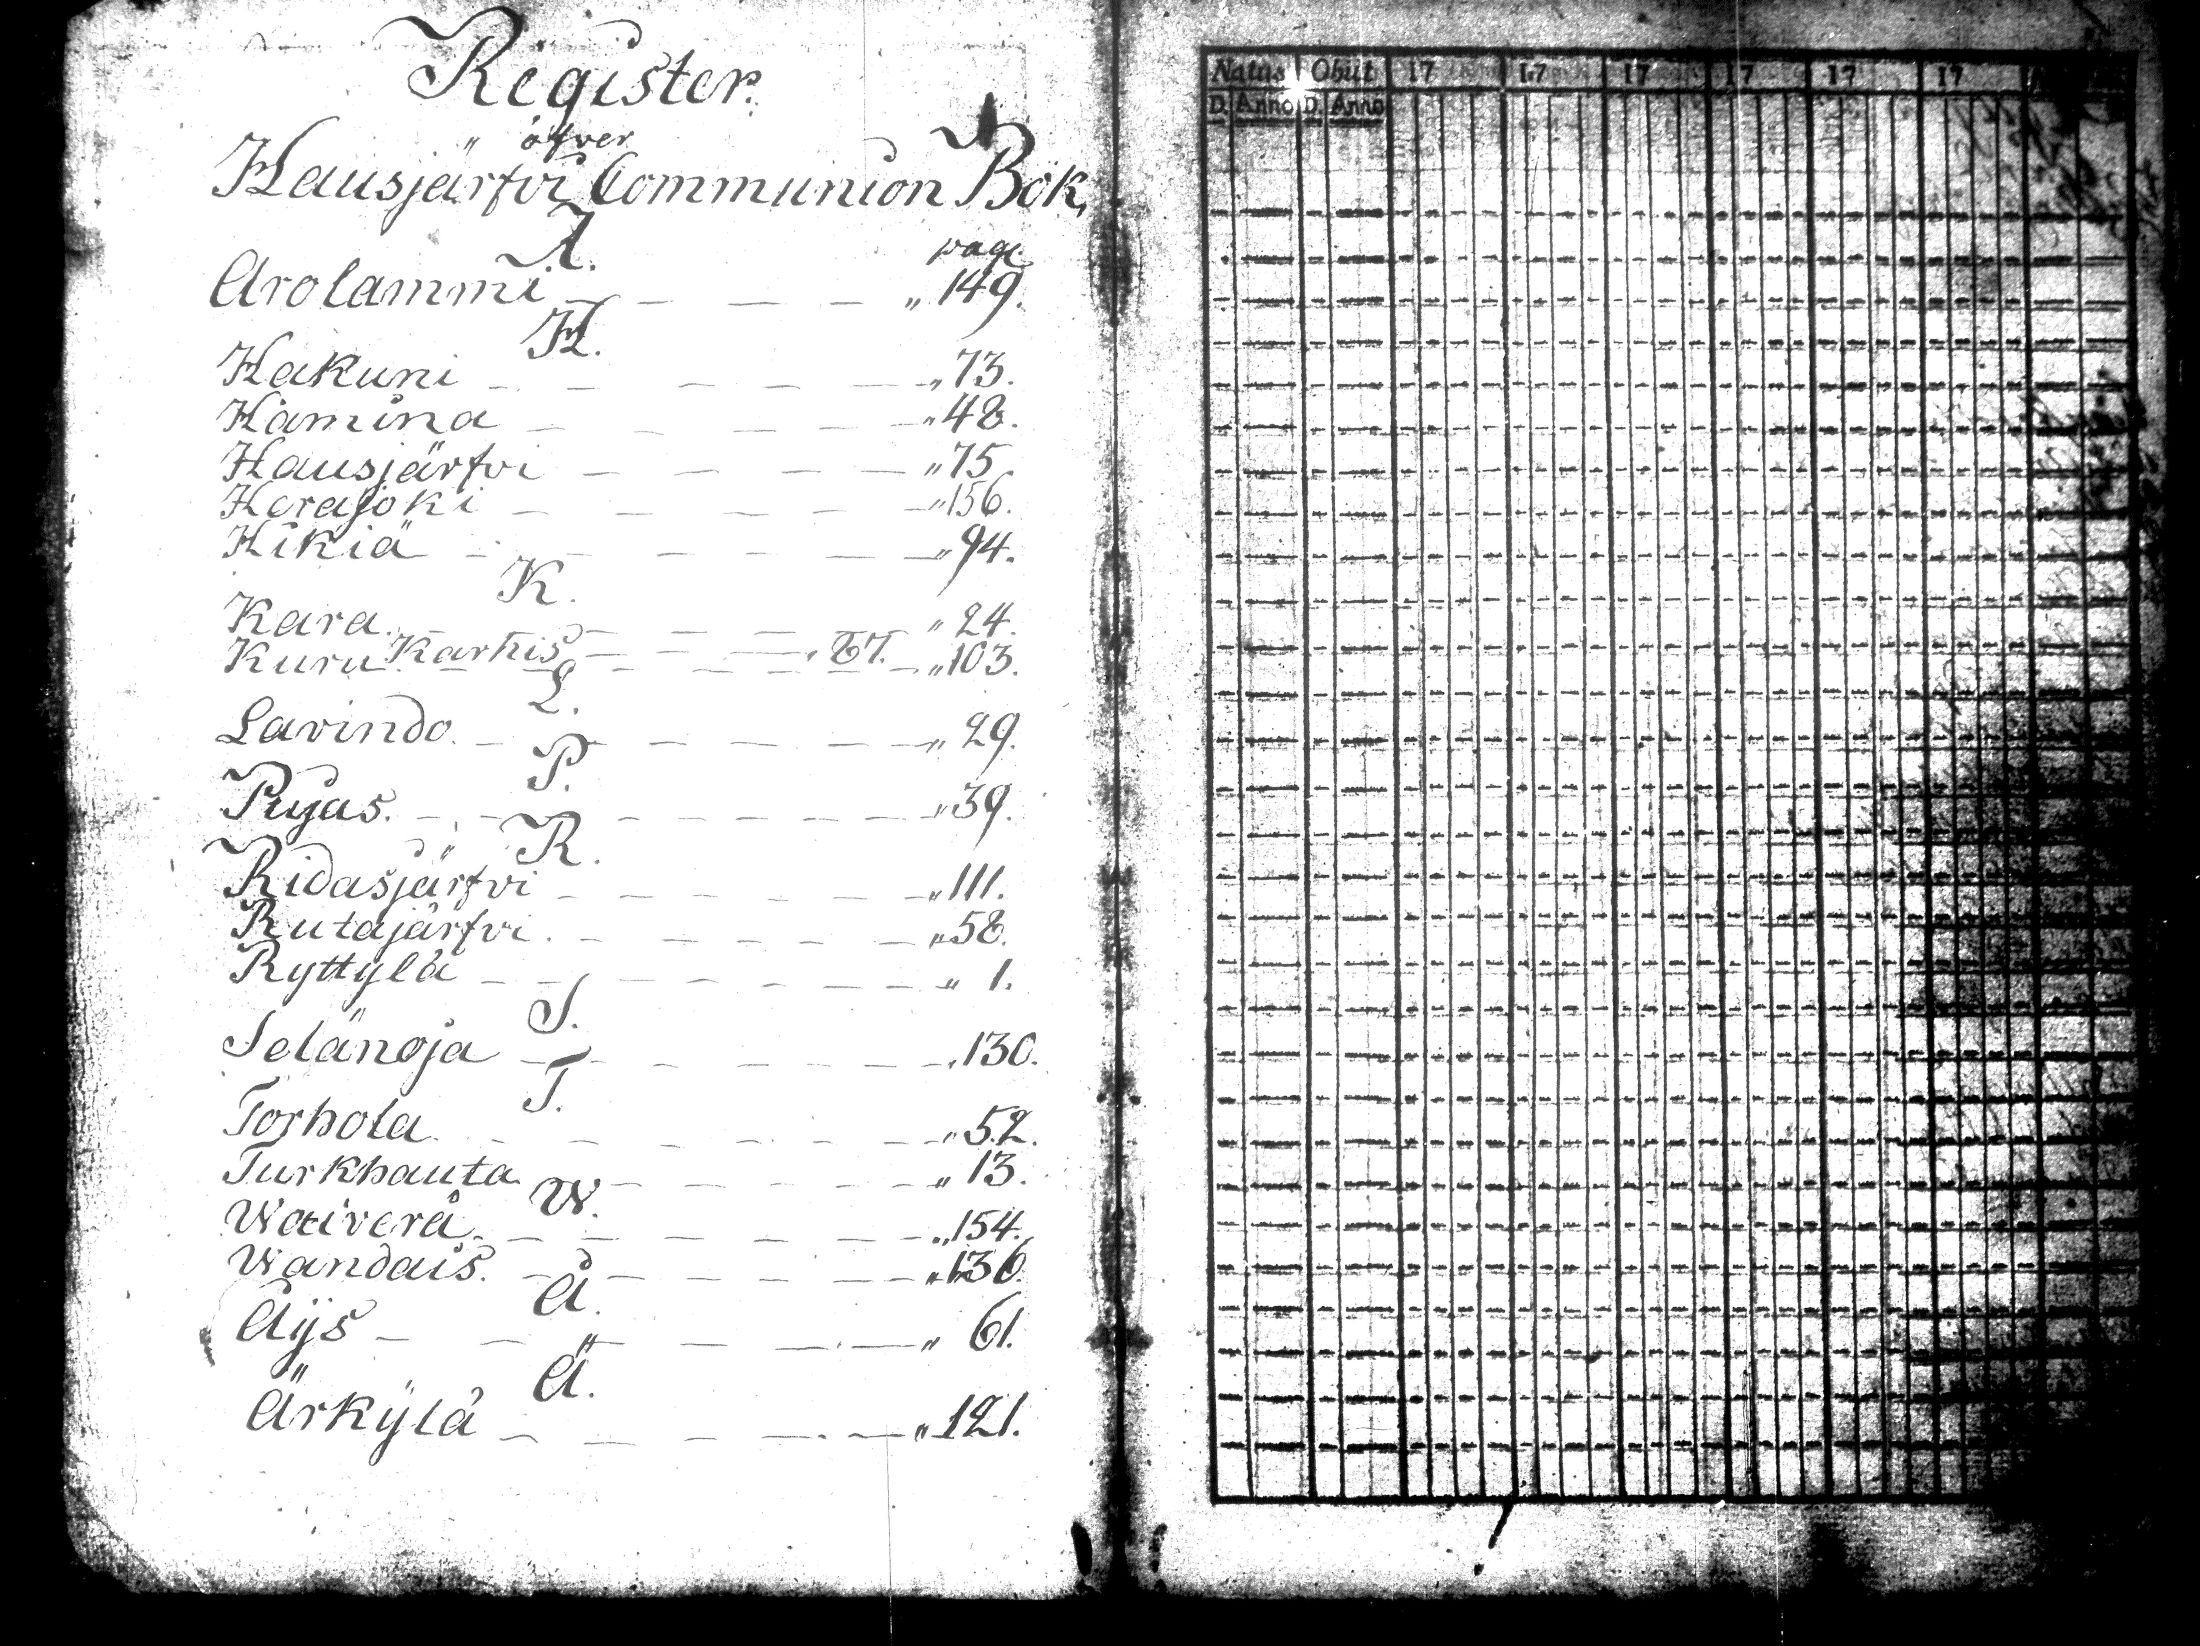 Register
öfver
Hausjärfvi Communion Bok,
A.
pag.
Arolammi — — — — „ 149.
H.
Hakuni — — — — „ 73.
Hamina — — — — „ 48.
Hausjärfvi — — — — „ 75.
Herajoki — — — — „ 156.
Hikiä — — — — „ 94.
K.
Kara. — — — — „ 24.
Karhis — — — „ 67.
Kuru — — — — „ 103.
L.
Lavindo. — — — — „ 29.
P.
Pujas. — — — — „ 39.
R.
Ridasjärfvi — — — — „ 111.
Rutajärfvi. — — — — „ 58.
Ryttylä — — — — „ 1.
S.
Selänoja — — — — „ 130.
T.
Torhola. — — — — „ 52.
Turkhauta — — — — „ 13.
W.
Waiverå. — — — — „ 154.
Wandais. — — — — „ 136.
Å.
Åijs — — — — „ 61.
Ä.
Ärkylä — — — — „ 121.
Natus Obiit 17 17 17 17 17 17
D. Anno D. Anno